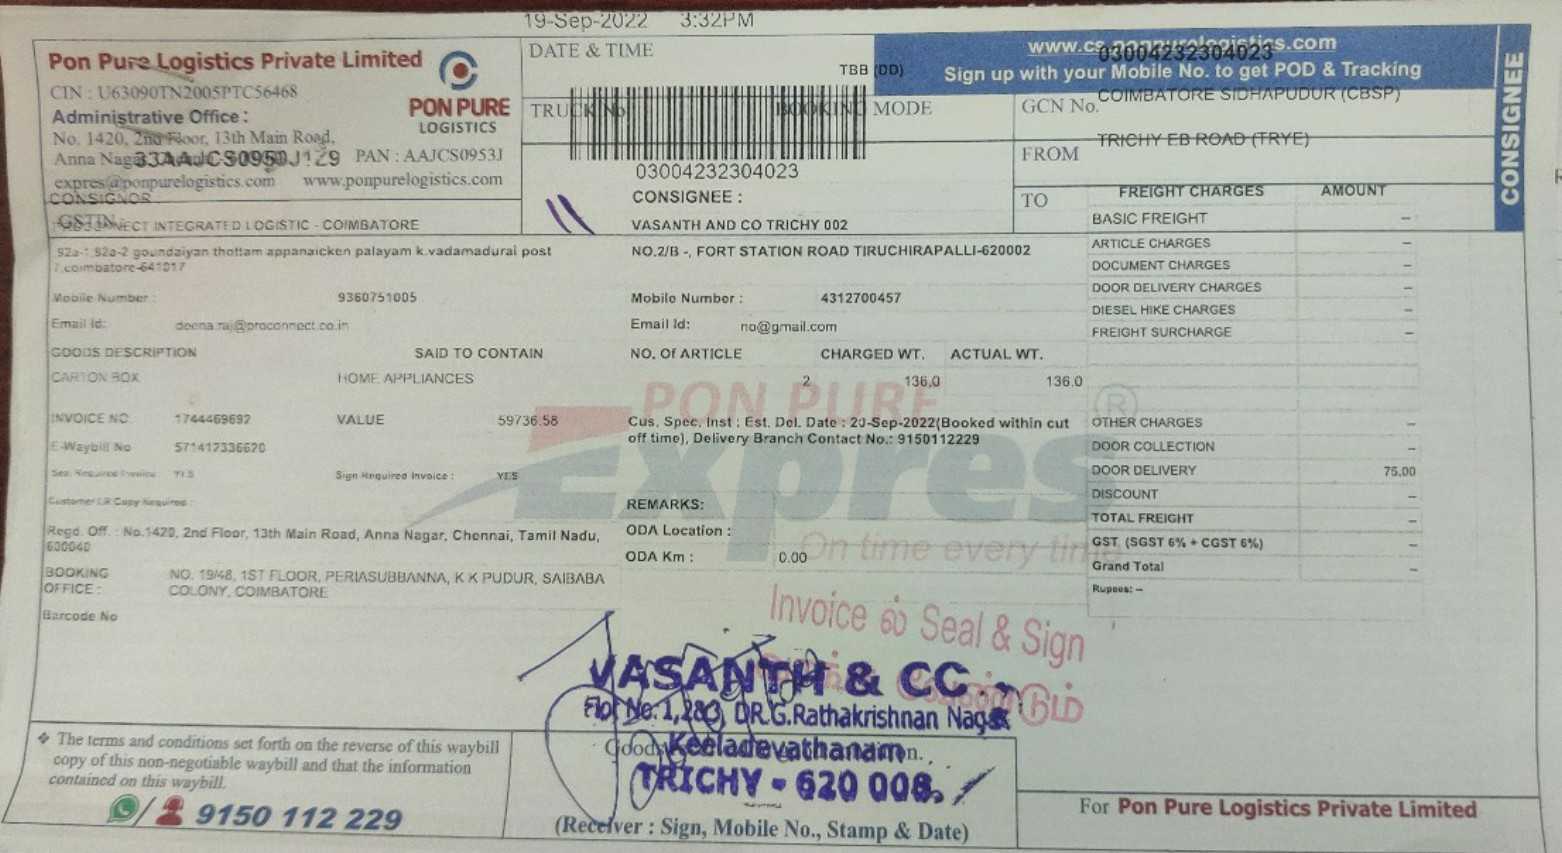 19-Sep-2022 3:32PM
Pon Pure Logistics Private Limited
CIN : U63090TN2005PTC56468
Administrative Office :
No. 1420, 2nd Floor, 13th Main Road,
Anna Nagar
33AAJCS0950J1Z9 PAN : AAJCS0953J
expres@ponpurelogistics.com www.ponpurelogistics.com
PON PURE
LOGISTICS
DATE & TIME
TBB (DD)
TRUCK No
BOOKING MODE
03004232304023
www.cs.ponpurelogistics.com
03004232304023
Sign up with your Mobile No. to get POD & Tracking
GCN No.
COIMBATORE SIDHAPUDUR (CBSP)
FROM
TRICHY EB ROAD (TRYE)
TO
CONSIGNEE
CONSIGNOR
GSTIN
CONNECT INTEGRATED LOGISTIC - COIMBATORE
92a-1,92a-2 goundaiyan thottam appanaicken palayam k.vadamadurai post
coimbatore-641017
Mobile Number : 9360751005
Email Id: deena.raj@proconnect.co.in
CONSIGNEE :
VASANTH AND CO TRICHY 002
NO.2/B -, FORT STATION ROAD TIRUCHIRAPALLI-620002
Mobile Number : 4312700457
Email Id: no@gmail.com
GOODS DESCRIPTION SAID TO CONTAIN NO. Of ARTICLE CHARGED WT. ACTUAL WT.
CARTON BOX HOME APPLIANCES 2 136.0 136.0
INVOICE NO 1744469692 VALUE 59736.58
E-Waybill No 571412336620
Seal Required Invoice YES Sign Required Invoice : YES
Customer LR Copy Required :
Cus. Spec. Inst : Est. Del. Date : 20-Sep-2022(Booked within cut
off time), Delivery Branch Contact No.: 9150112229
PON PURE
Expres
®
On time every time
REMARKS:
ODA Location :
ODA Km : 0.00
Regd. Off. : No.1420, 2nd Floor, 13th Main Road, Anna Nagar, Chennai, Tamil Nadu,
600040
BOOKING
OFFICE :
NO. 19/48, 1ST FLOOR, PERIASUBBANNA, K K PUDUR, SAIBABA
COLONY, COIMBATORE
Barcode No
FREIGHT CHARGES AMOUNT
BASIC FREIGHT –
ARTICLE CHARGES –
DOCUMENT CHARGES –
DOOR DELIVERY CHARGES –
DIESEL HIKE CHARGES –
FREIGHT SURCHARGE –
OTHER CHARGES –
DOOR COLLECTION –
DOOR DELIVERY 75.00
DISCOUNT –
TOTAL FREIGHT –
GST (SGST 6% + CGST 6%) –
Grand Total –
Rupees: –
Invoice ல் Seal & Sign
VASANTH & CO.
No. 1,2&3, DR.G.Rathakrishnan Nagar
Keeladevathanam
TRICHY - 620 008.
❖ The terms and conditions set forth on the reverse of this waybill
copy of this non-negotiable waybill and that the information
contained on this waybill.
9150 112 229
(Receiver : Sign, Mobile No., Stamp & Date)
For Pon Pure Logistics Private Limited